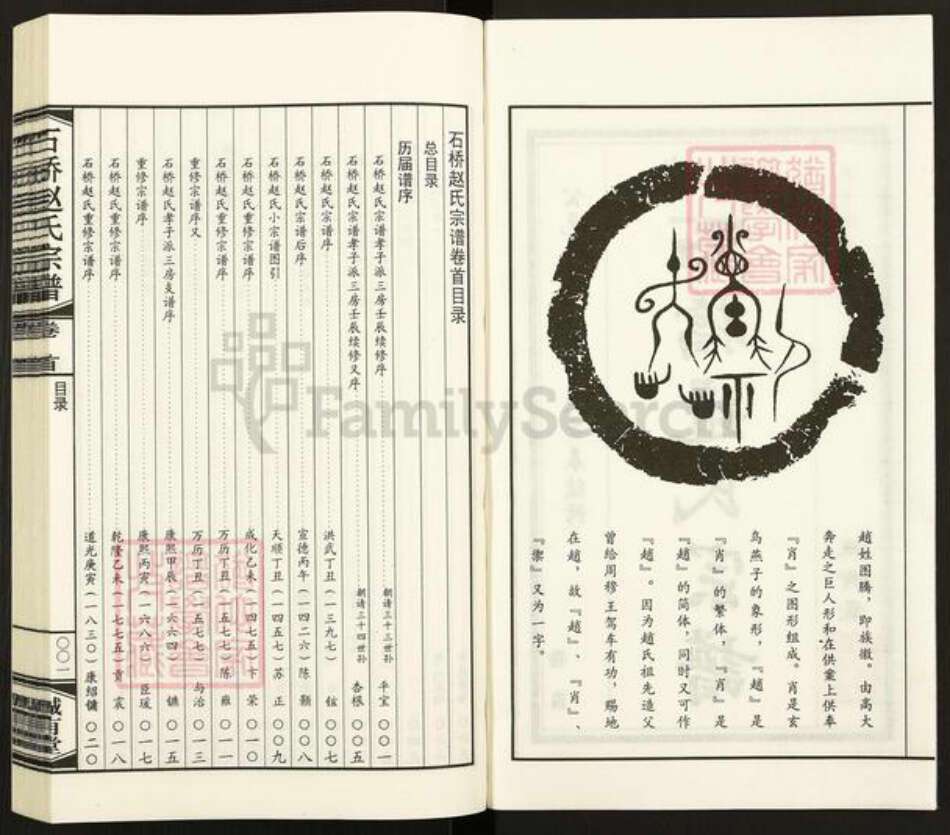 赵姓图腾，即族徽。由高大
奔走之巨人形和在供案上供奉
『肖』之图形组成。肖是玄
鸟燕子的象形，『趙』是
『肖』的繁体，『肖』是
『趙』的简体，同时又可作
『趙』。因为趙氏祖先造父
曾给周穆王驾车有功，赐地
在趙，故『趙』、『肖』、
『』又为一字。
石桥赵氏宗谱卷首目录
总目录
历届谱序
石桥赵氏宗谱孝子派三房壬辰续修序 朝请三十三世孙 平宝 〇〇一
石桥赵氏宗谱孝子派三房壬辰续修又序 朝请三十四世孙 杏根 〇〇五
石桥赵氏宗谱序 洪武丁丑（一三九七） 〇〇七
石桥赵氏宗谱后序 宣德丙午（一四二六）陈 颢 〇〇八
石桥赵氏小宗谱图引 天顺丁丑（一四五七）苏 正 〇〇九
石桥赵氏重修宗谱序 成化乙未（一四七五）卞 荣 〇一〇
石桥赵氏重修宗谱序 万历丁丑（一五七七）陈 雍 〇一一
重修宗谱序又 万历丁丑（一五七七） 与治 〇一三
石桥赵氏孝子派三房支谱序 康熙甲辰（一六六四） 〇一五
重修宗谱序 康熙丙寅（一六八六） 臣瑗 〇一七
石桥赵氏重修宗谱序 乾隆乙未（一七七五）贡 震 〇一八
石桥赵氏重修宗谱序 道光庚寅（一八三〇）康绍镛 〇二〇
石桥赵氏宗谱
卷首
目录
〇〇一
FamilySearch